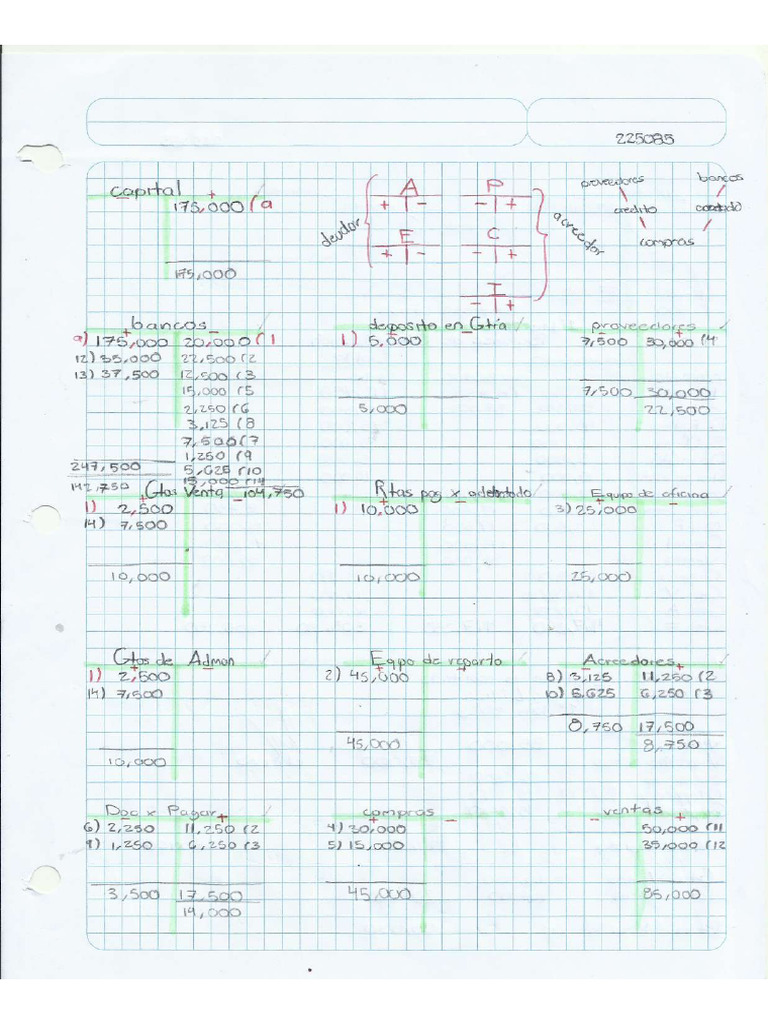 225085
capital
- +
175,000 (a
175,000
deudor
A
+ -
E
+ -
P
- +
C
- +
I
- +
acreedor
proveedores bancos
credito contado
compras
bancos
+ -
a) 175,000 20,000 (1
12) 35,000 22,500 (2
13) 37,500 12,500 (3
15,000 (5
2,250 (6
3,125 (8
7,500 (7
1,250 (9
5,625 (10
15,000 (14
247,500
142,750 104,750
deposito en Gtía
+ -
1) 5,000
5,000
proveedores
- +
7,500 30,000 (4
7,500 30,000
22,500
Gtos Venta
+ -
1) 2,500
14) 7,500
10,000
Rtas pag x adelantado
+ -
1) 10,000
10,000
Equipo de oficina
+ -
3) 25,000
25,000
Gtos de Admon
+ -
1) 2,500
14) 7,500
10,000
Eqpo de reparto
+ -
2) 45,000
45,000
Acreedores
- +
8) 3,125 11,250 (2
10) 5,625 6,250 (3
8,750 17,500
8,750
Doc x Pagar
- +
6) 2,250 11,250 (2
9) 1,250 6,250 (3
3,500 17,500
14,000
compras
+ -
4) 30,000
5) 15,000
45,000
ventas
- +
50,000 (11
35,000 (12
85,000